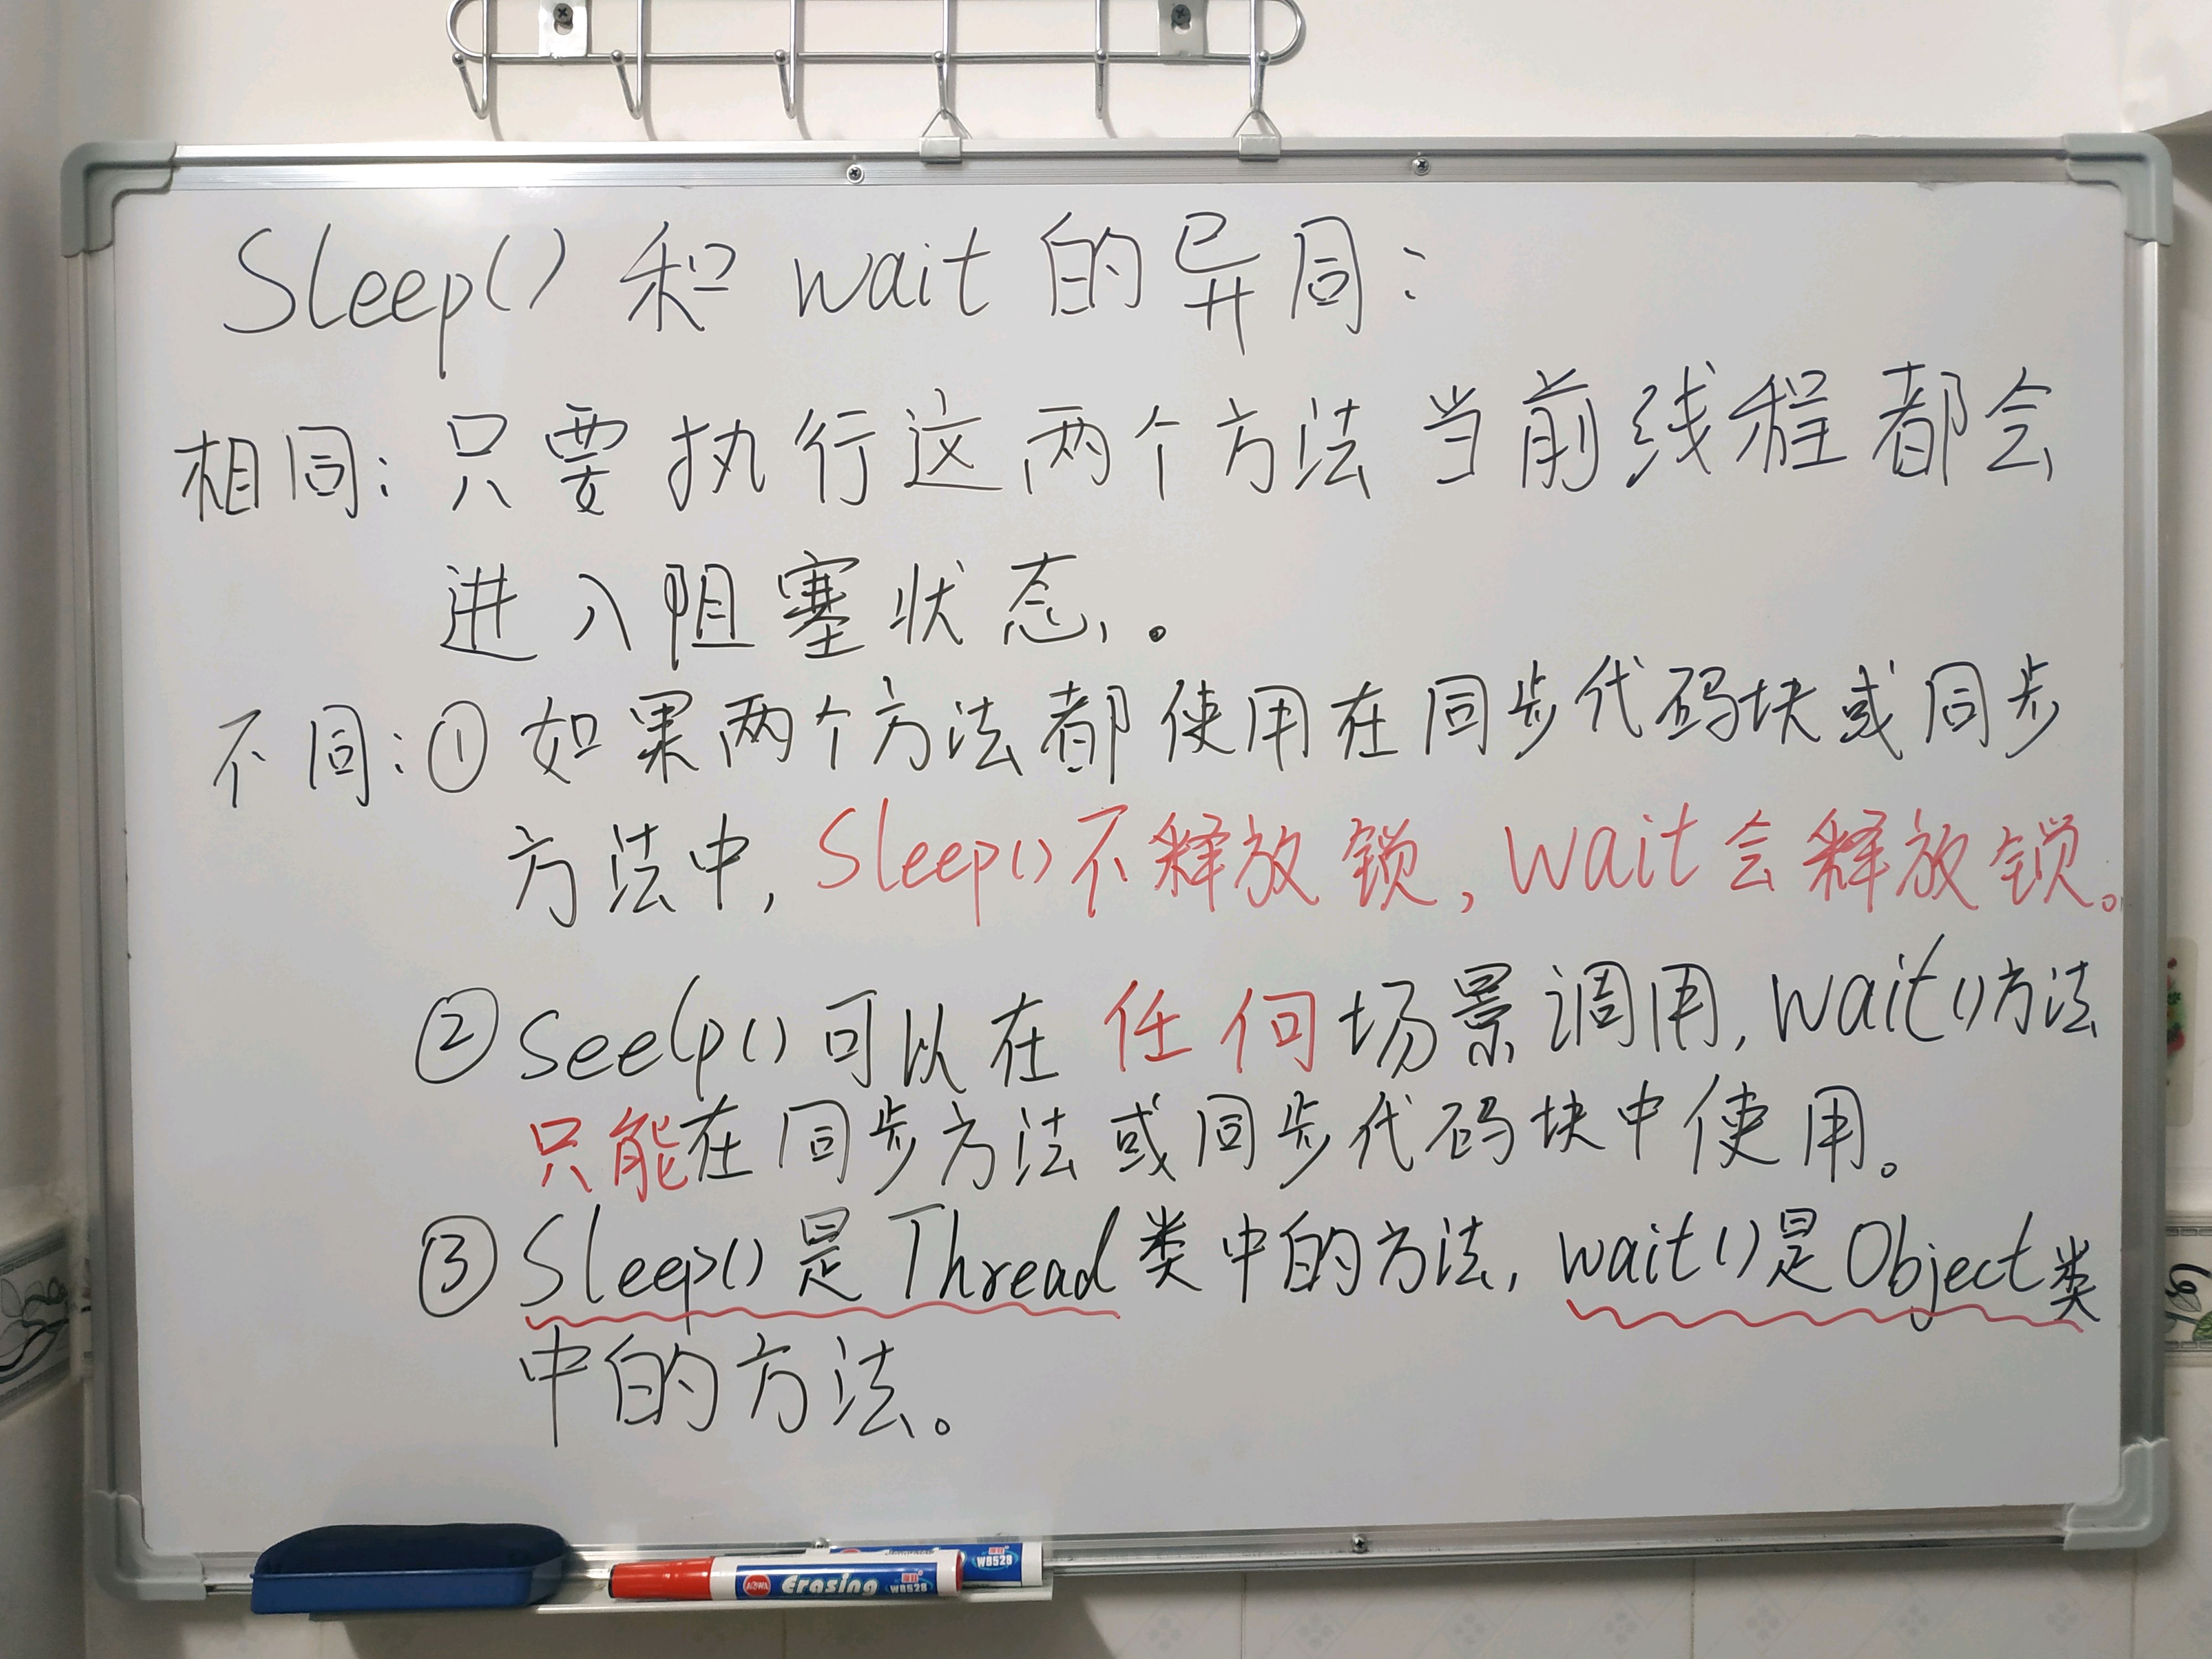 Sleep() 和 wait 的异同：
相同：只要执行这两个方法当前线程都会
进入阻塞状态。
不同：① 如果两个方法都使用在同步代码块或同步
方法中，Sleep()不释放锁，Wait会释放锁。
② Seelp()可以在任何场景调用，Wait()方法
只能在同步方法或同步代码块中使用。
③ Sleep()是Thread类中的方法，wait()是Object类
中的方法。
Erasing WB528
WB528